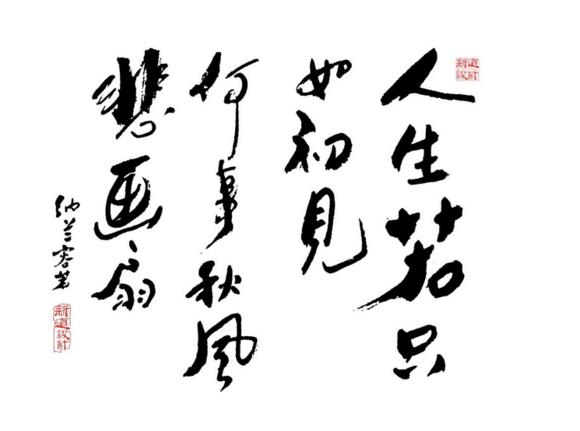 人生若只
如初見
何事秋風
悲画扇
纳兰容若
新道設計
新道設計